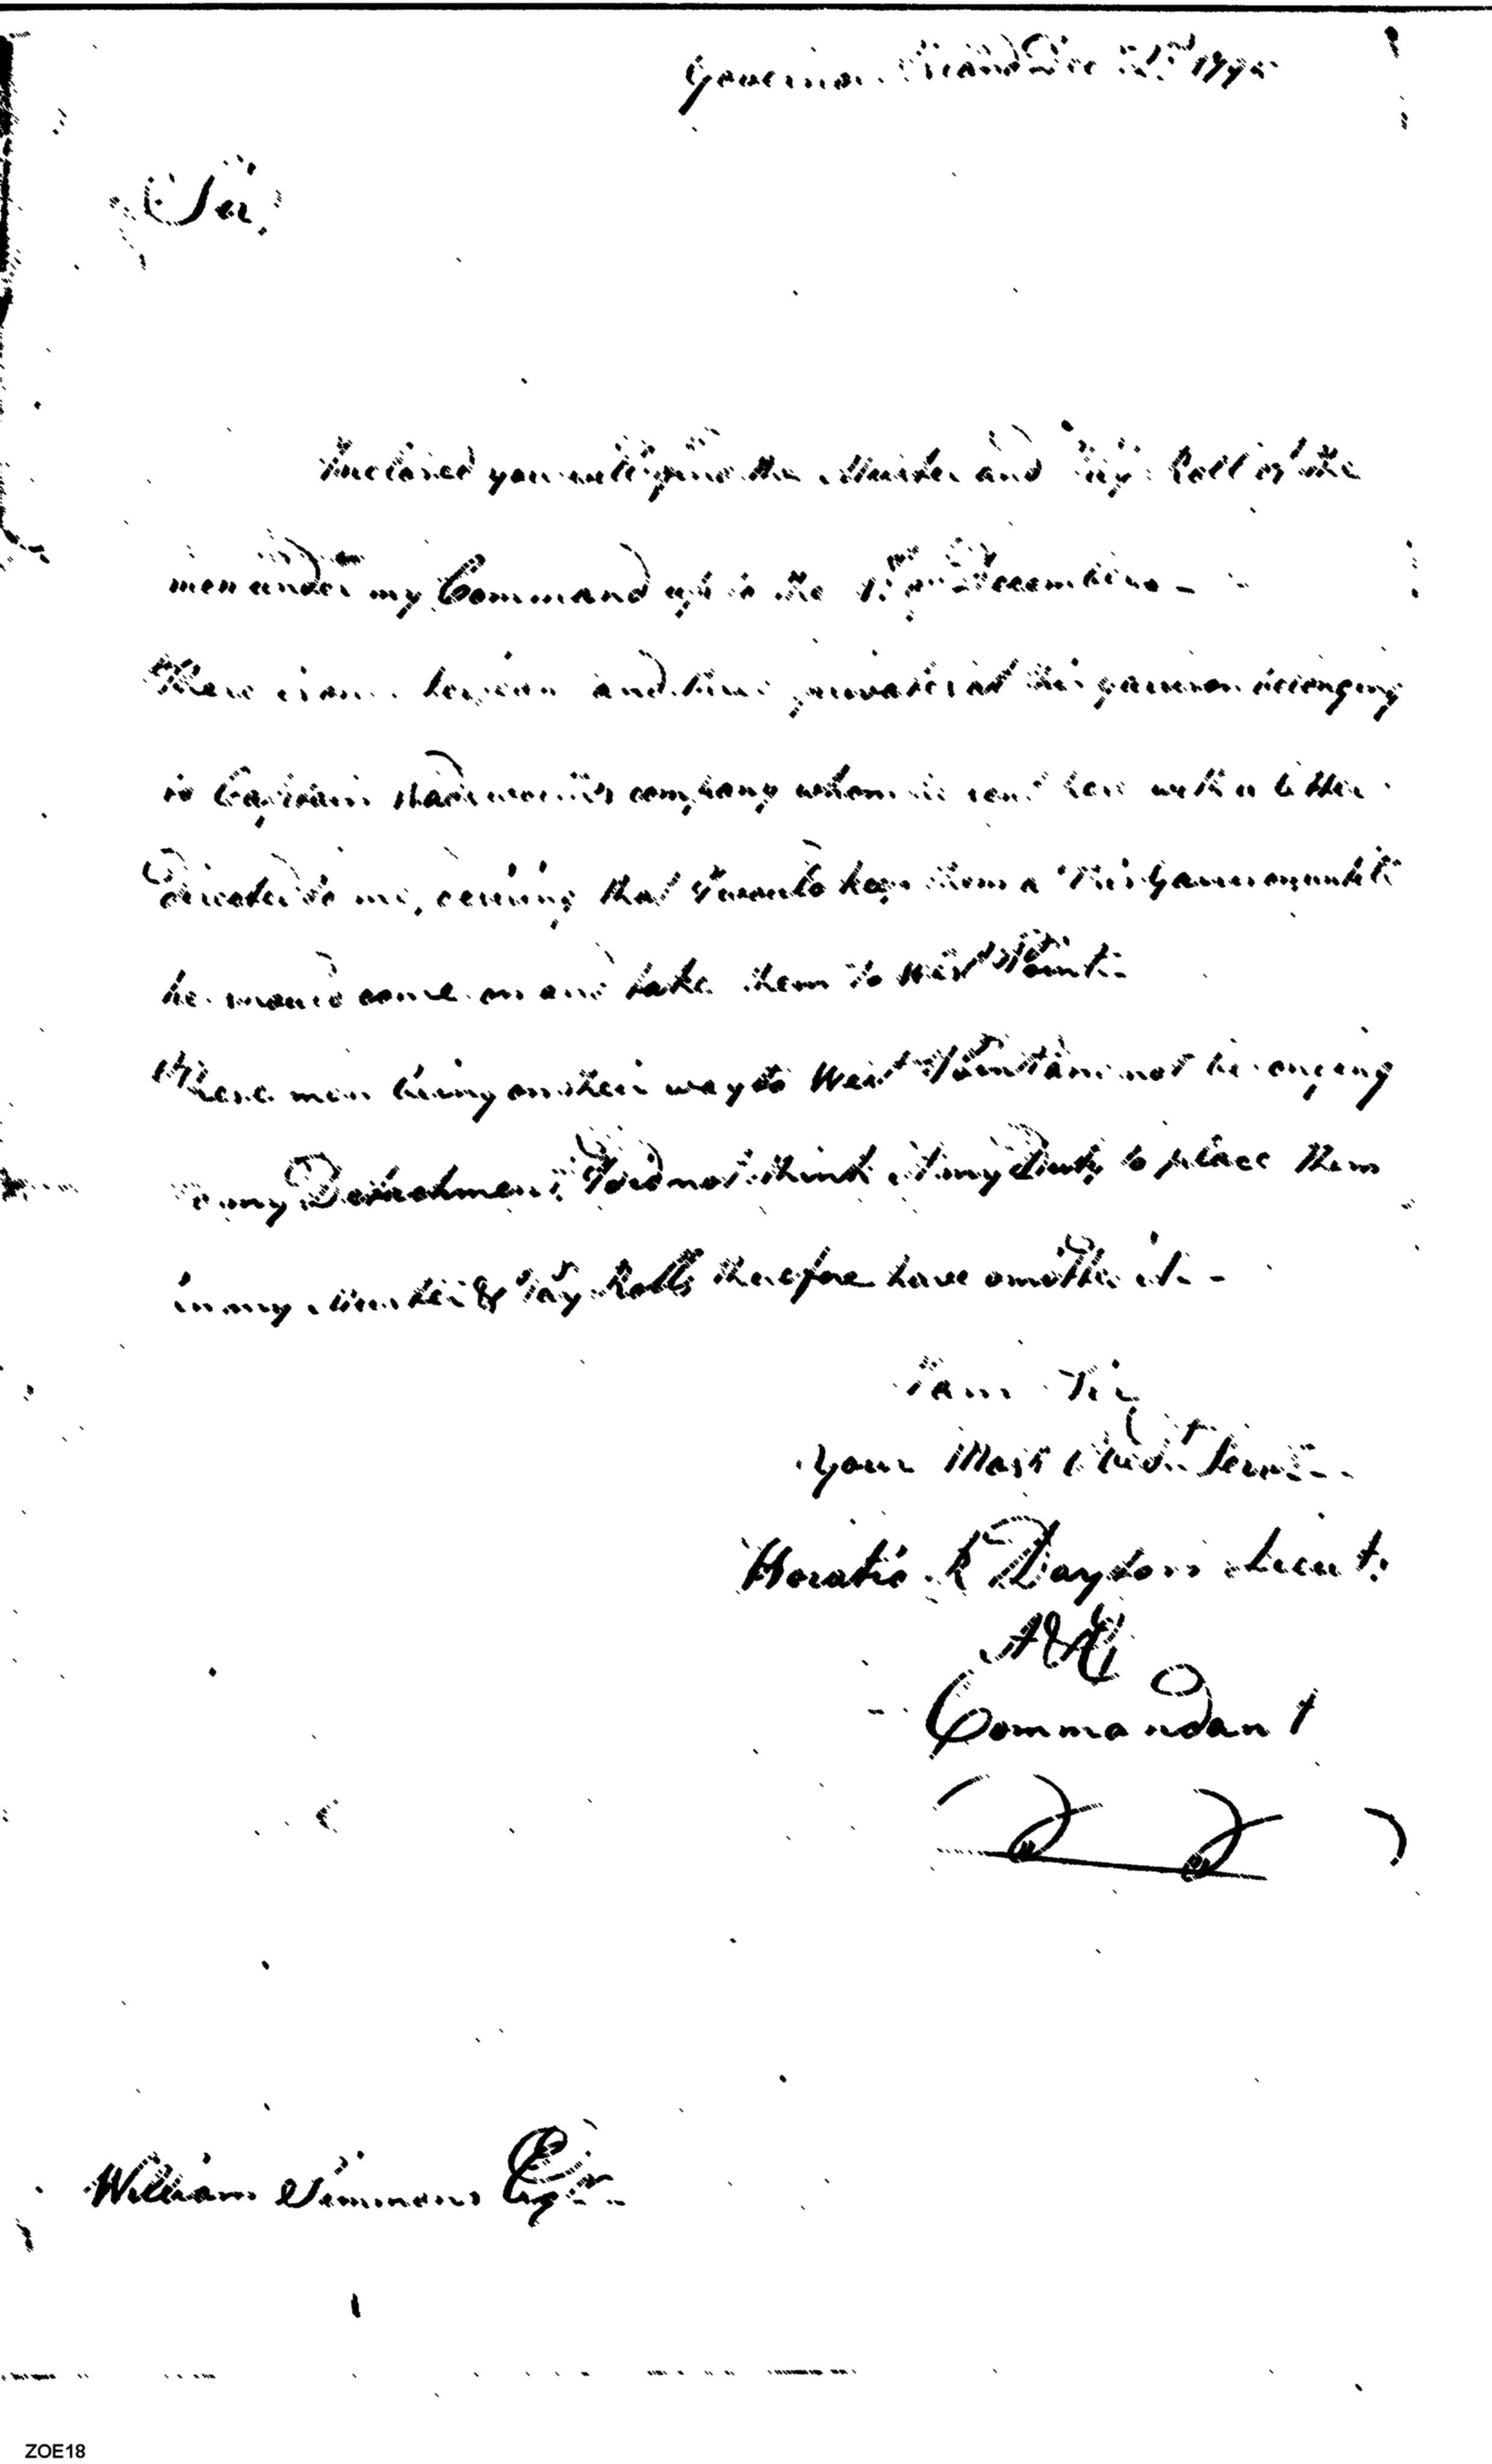 Governor Island Dec 1795
Sir,
Inclosed you will find the Muster and Pay Roll of the
men under my Command up to the 1st of December
There is one and privates at this garrison belonging
to Captain company whom he sent here with a letter
directed to me, desiring that I would keep them at this Garrison untill
he would come on and take them to West Point
These men being on their way to West Point and not belonging
to my Detachment, I did not think it my Duty to place them
in my Muster & Pay Rolls therefore have omitted it
I am Sir
your Most Obedt Servt
Horatio R Dayton Lieut.
A&E
Commandant
William Simmons Esqr
ZOE18